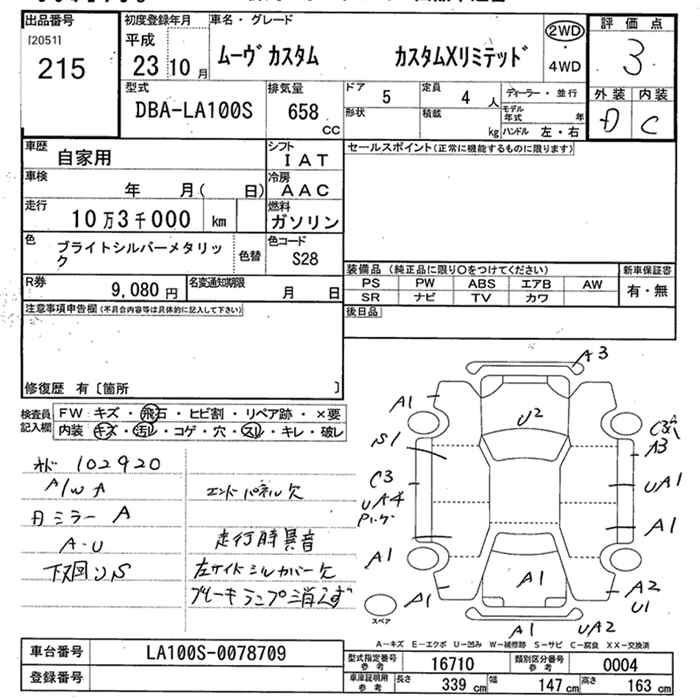 出品番号 初度登録年月 車名・グレード 2WD 評価点
[2051] 平成 ムーヴ カスタム カスタムXリミテッド ・ 3
215 23 10月 4WD 外装 内装
型式 排気量 ドア 5 定員 4人 ディーラー・並行 D C
DBA-LA100S 658 cc 形状 積載 kg モデル年式 年
ハンドル 左・右
車歴 自家用 シフト IAT セールスポイント(正常に機能するものに限ります)
車検 年 月( 日) 冷房 AAC
走行 10万3千000 km 燃料 ガソリン
色 ブライトシルバーメタリック 色替 色コード S28
装備品 (純正品に限り○をつけてください) 新車保証書
R券 9,080円 名変通知期限 月 日 PS PW ABS エアB AW 有・無
SR ナビ TV カワ
注意事項申告欄(不具合内容等は具体的に記入して下さい) 後日品
修復歴 有〔箇所 〕
検査員記入欄 FW キズ・飛石・ヒビ割・リペア跡・×要
内装 キズ・汚レ・コゲ・穴・スレ・キレ・破レ
102920
A/W A エンドパネル欠
ミラー A
A-U 走行時異音
下廻りS 左サイドシルカバー欠
ブレーキランプ消えず
A3
A1 U2
S1 A3
C3 UA1
UA4
A1
A1 A2
A1 A1 U1
A1 UA2
スペア
A-キズ E-エクボ U-凹み W-補修跡 S-サビ C-腐食 XX-交換済
車台番号 LA100S-0078709 型式指定番号 参考 16710 類別区分番号 参考 0004
登録番号 車庫証明用 参考 長さ 339 cm 幅 147 cm 高さ 163 cm